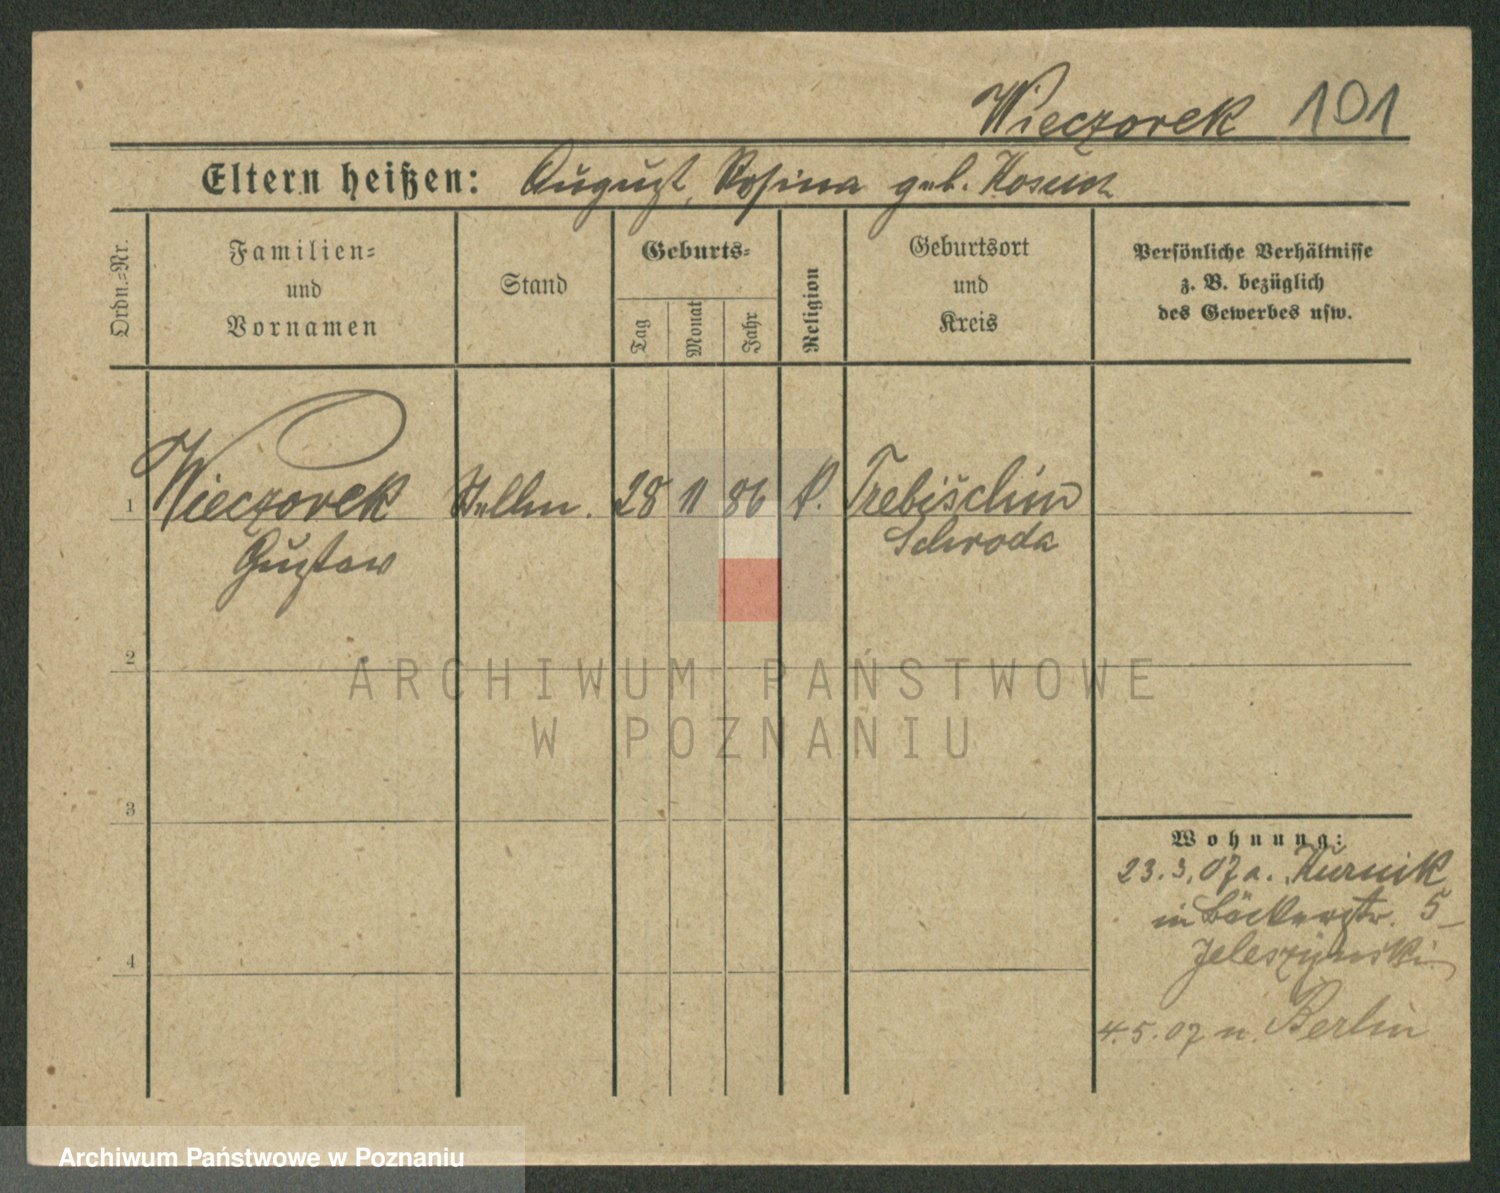 Wieczorek 101
Eltern heißen: August, Rosina geb.
Ordn.-Nr.
Familien-
und
Vornamen
Stand
Geburts-
Tag
Monat
Jahr
Religion
Geburtsort
und
Kreis
Persönliche Verhältnisse
z. B. bezüglich
des Gewerbes usw.
1 Wieczorek Stellm. 28 11 86 k. Trebischin
Gustav Schroda
2
ARCHIWUM PAŃSTWOWE
W POZNANIU
3
Wohnung:
23.3.07 a. Kurnik
in Bäckerstr. 5
4
4.5.07 n. Berlin
Archiwum Państwowe w Poznaniu